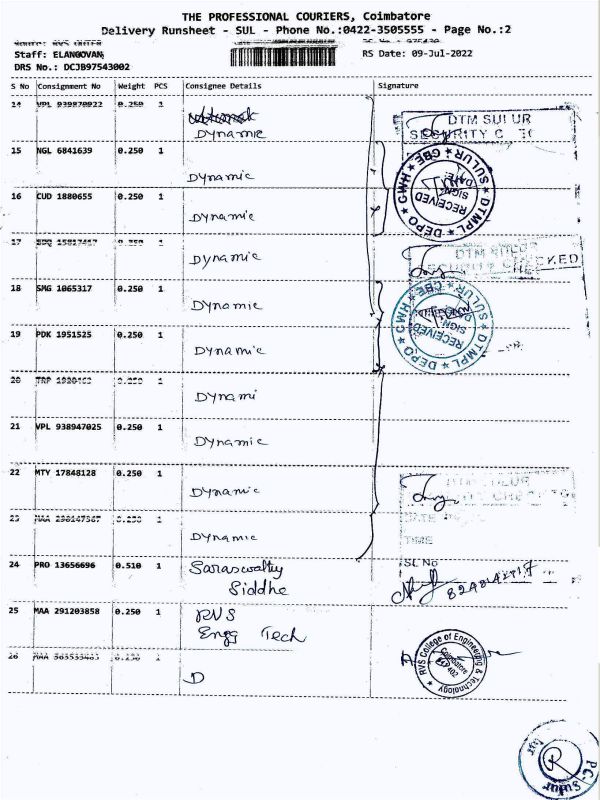 THE PROFESSIONAL COURIERS, Coimbatore
Delivery Runsheet - SUL - Phone No.:0422-3505555 - Page No.:2
Staff: ELANGOVAN
RS Date: 09-Jul-2022
DRS No.: DCJB97543002
S No Consignment No Weight PCS Consignee Details Signature
14 VPL 939870922 0.250 1
Dynamic
DTM SULUR
SECURITY
15 NGL 6841639 0.250 1 Dynamic
16 CUD 1880655 0.250 1 Dynamic
DTMPL ★ DEPO ★ CWH ★ SULUR ★ CBE
RECEIVED
SIGN:
DATE:
17 1 Dynamic
SECURITY CHECKED
18 SMG 1065317 0.250 1 Dynamic
19 PDK 1951525 0.250 1 Dynamic
DTMPL ★ DEPO ★ CWH ★ SULUR ★ CBE
RECEIVED
SIGN
20 TRP 0.250 1 Dynami
21 VPL 938947025 0.250 1 Dynamic
22 MTY 17848128 0.250 1 Dynamic
23 MAA 0.250 1 Dynamic
DATE
TIME
SL NO
24 PRO 13656696 0.510 1 Saraswathy
Siddhe
25 MAA 291203858 0.250 1 RVS
Engg Tech
RVS College of Engineering & Technology
Coimbatore
26 MAA 0.250 1 D
PC-Sulur